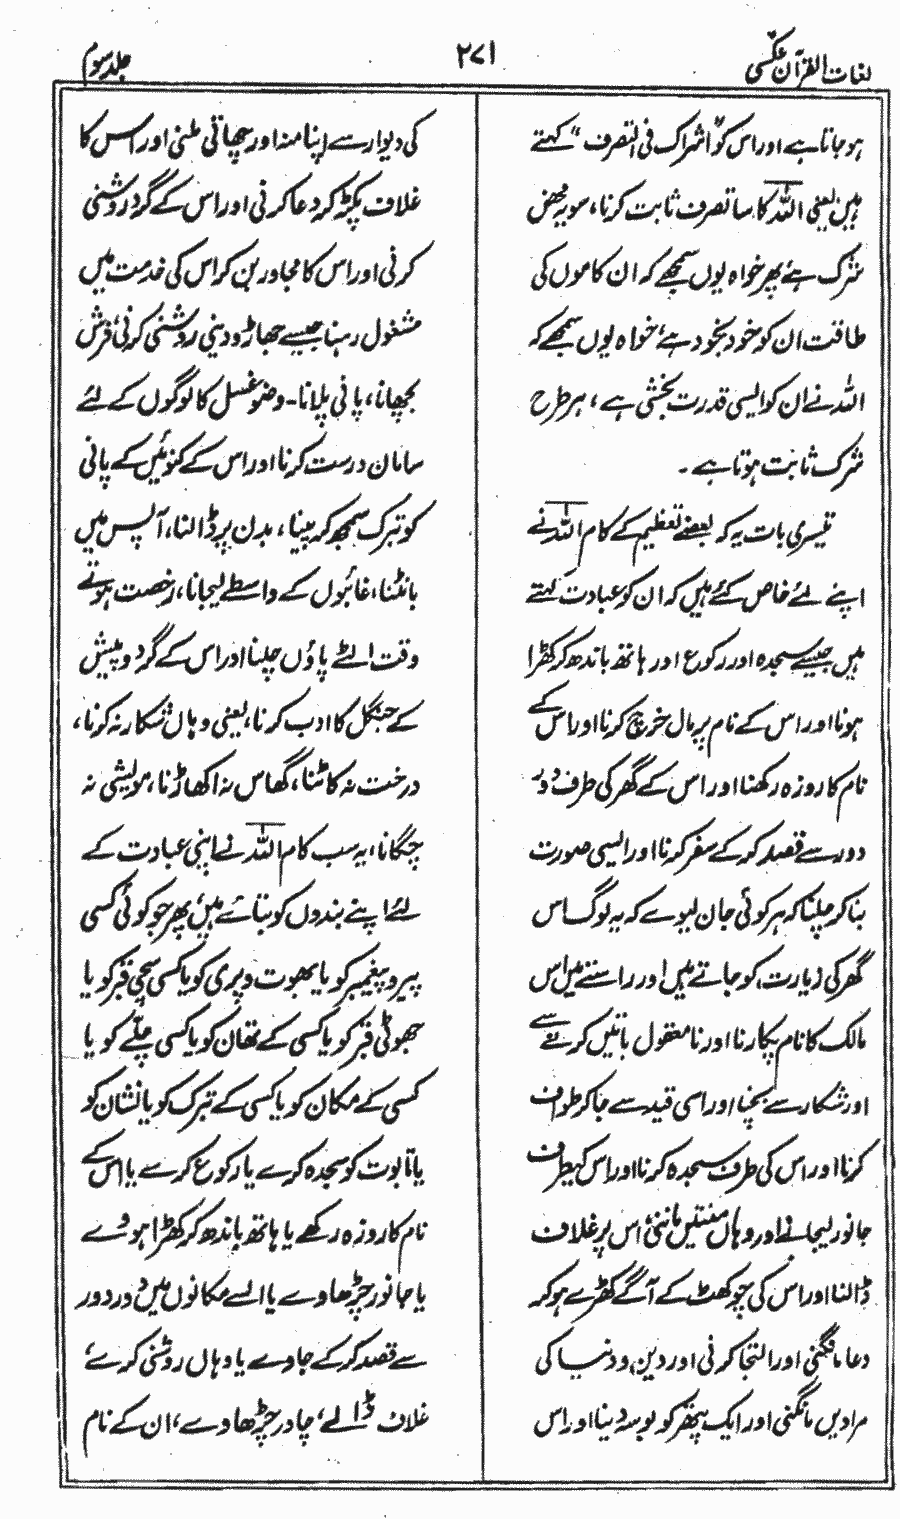 لغات القرآن عکسی
۲۷۱
جلد سوم
ہو جاتا ہے اور اس کو "اشراک فی التصرف" کہتے
ہیں یعنی اللہ کا سا تصرف ثابت کرنا، سو یہ محض
شرک ہے، پھر خواہ یوں سمجھے کہ ان کاموں کی
طاقت ان کو خود بخود ہے، خواہ یوں سمجھے کہ
اللہ نے ان کو ایسی قدرت بخشی ہے، ہر طرح
شرک ثابت ہوتا ہے۔
تیسری بات یہ کہ بعضے تعظیم کے کام اللہ نے
اپنے لئے خاص کئے ہیں کہ ان کو عبادت کہتے
ہیں جیسے سجدہ اور رکوع اور ہاتھ باندھ کر کھڑا
ہونا اور اس کے نام پر مال خرچ کرنا اور اس کے
نام کا روزہ رکھنا اور اس کے گھر کی طرف دور
دور سے قصد کر کے سفر کرنا اور ایسی صورت
بنا کر چلنا کہ ہر کوئی جان لیوے کہ یہ لوگ اس
گھر کی زیارت کو جاتے ہیں اور راستے میں اس
مالک کا نام پکارنا اور نامعقول باتیں کرنے سے
اور شکار سے بچنا اور اسی قید سے جا کر طواف
کرنا اور اس کی طرف سجدہ کرنا اور اس کی طرف
جانور لیجانے اور وہاں منتیں ماننی، اس پر غلاف
ڈالنا اور اس کی چوکھٹ کے آگے کھڑے ہو کر
دعا مانگنی اور التجا کرنی اور دین و دنیا کی
مرادیں مانگنی اور ایک پتھر کو بوسہ دینا اور اس
کی دیوار سے اپنا منہ اور چھاتی ملنی اور اس کا
غلاف پکڑ کر دعا کرنی اور اس کے گرد روشنی
کرنی اور اس کا مجاور بن کر اس کی خدمت میں
مشغول رہنا جیسے جھاڑو دینی روشنی کرنی، فرش
بچھانا، پانی پلانا۔ وضو غسل کا لوگوں کے لئے
سامان درست کرنا اور اس کے کنوئیں کے پانی
کو تبرک سمجھ کر پینا، بدن پر ڈالنا، آپس میں
بانٹنا، غائبوں کے واسطے لیجانا، رخصت ہوتے
وقت الٹے پاؤں چلنا اور اس کے گرد و پیش
کے جنگل کا ادب کرنا، یعنی وہاں شکار نہ کرنا،
درخت نہ کاٹنا، گھاس نہ اکھاڑنا، مویشی نہ
چگانا، یہ سب کام اللہ نے اپنی عبادت کے
لئے اپنے بندوں کو بتائے ہیں، پھر جو کوئی کسی
پیر و پیغمبر کو یا بھوت و پری کو یا کسی سچی قبر کو یا
جھوٹی قبر کو یا کسی کے تھان کو یا کسی چلّے کو یا
کسی کے مکان کو یا کسی کے تبرک کو یا نشان کو
یا تابوت کو سجدہ کرے یا رکوع کرے یا اس کے
نام کا روزہ رکھے یا ہاتھ باندھ کر کھڑا ہووے
یا جانور چڑھاوے یا ایسے مکانوں میں دور دور
سے قصد کر کے جاوے یا وہاں روشنی کرے،
غلاف ڈالے، چادر چڑھاوے، ان کے نام